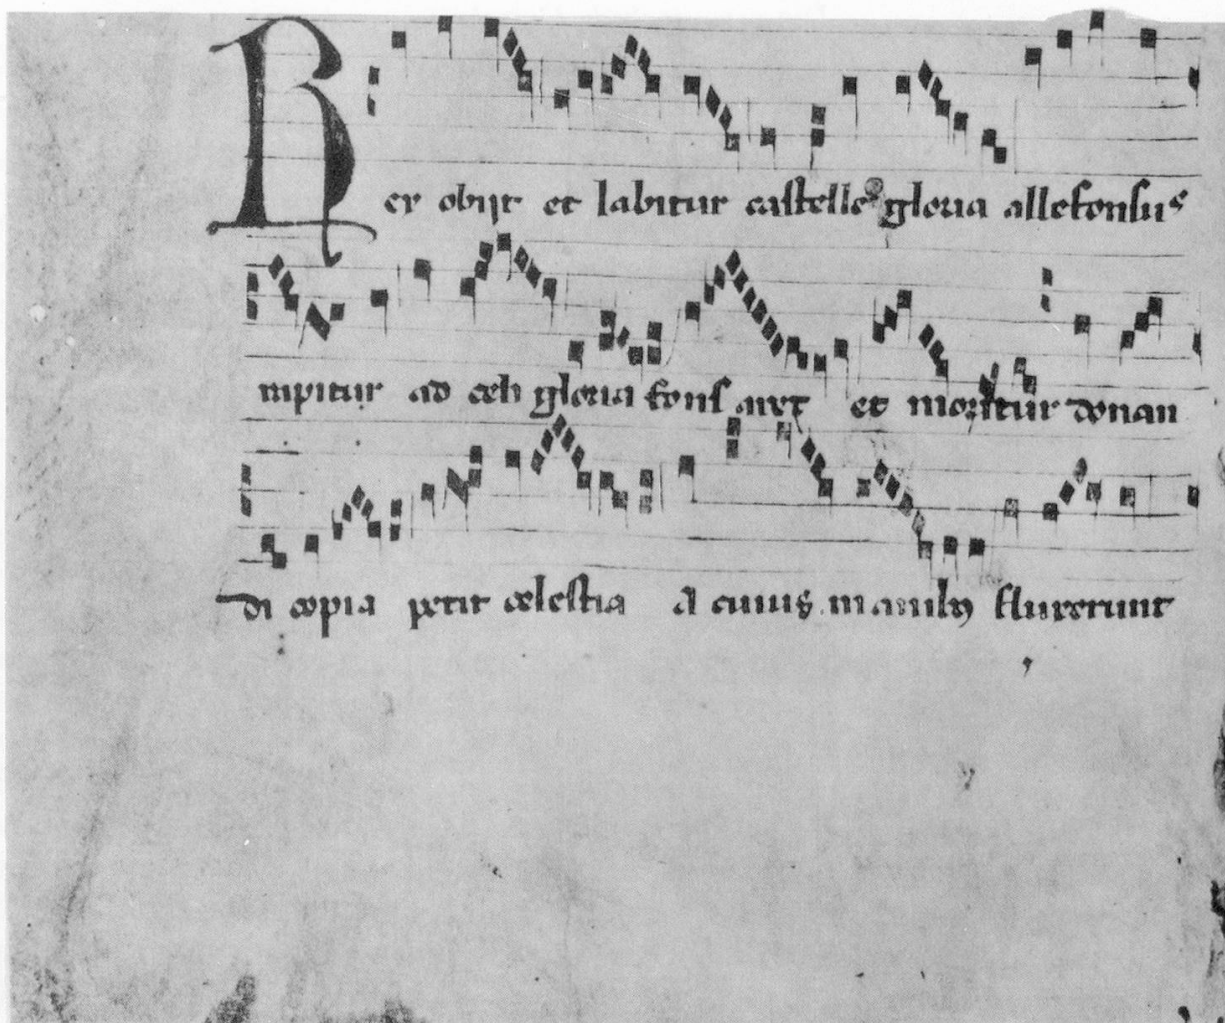 Rex obijt et labitur castelle gloria allefonsus
rapitur ad celi gloria fons aret et moritur donan
di copia petit celestia A cuius manibus fluxerunt